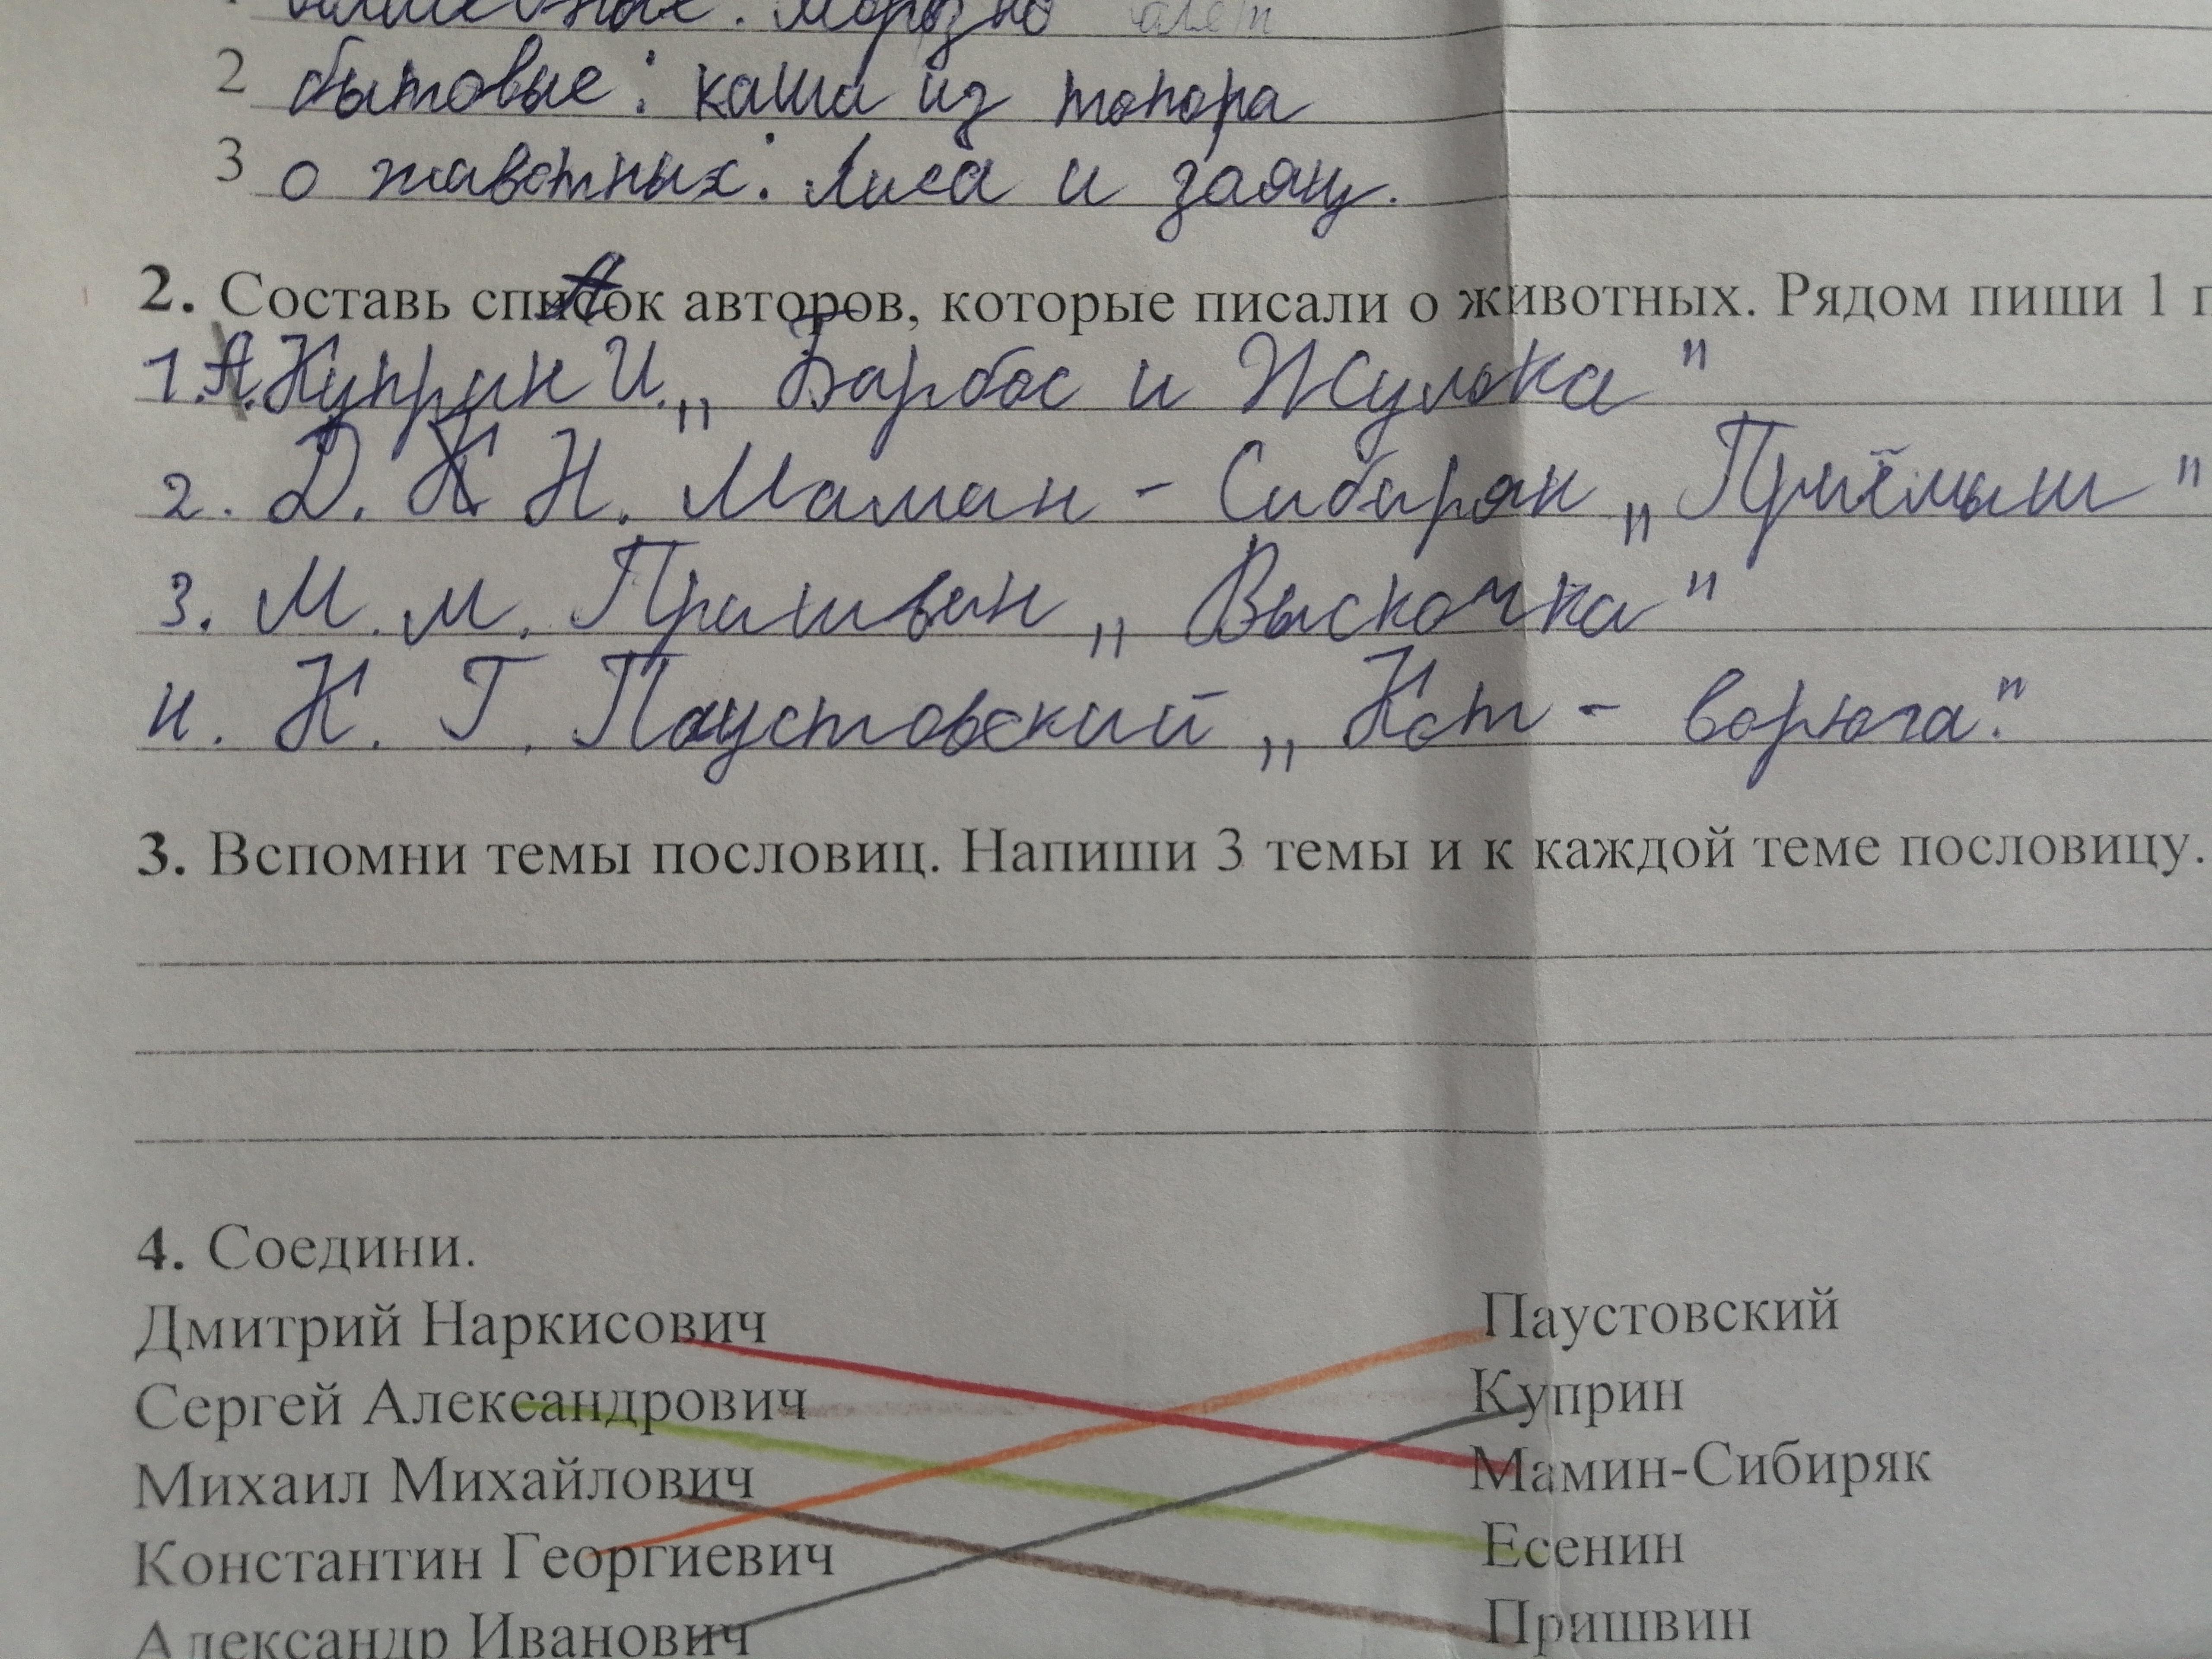 волшебные: Морозко
2 бытовые: каша из топора
3 о жавотных: Лиса и заяц.
2. Составь список авторов, которые писали о животных. Рядом пиши 1 п
1. А. Куприн И. „Барбос и Жулька"
2. Д. Н. Мамин - Сибиряк „Приёмыш"
3. М. М. Пришвин „Выскочка"
4. К. Г. Паустовский „Кот - ворюга".
3. Вспомни темы пословиц. Напиши 3 темы и к каждой теме пословицу.
4. Соедини.
Дмитрий Наркисович Паустовский
Сергей Александрович Куприн
Михаил Михайлович Мамин-Сибиряк
Константин Георгиевич Есенин
Александр Иванович Пришвин